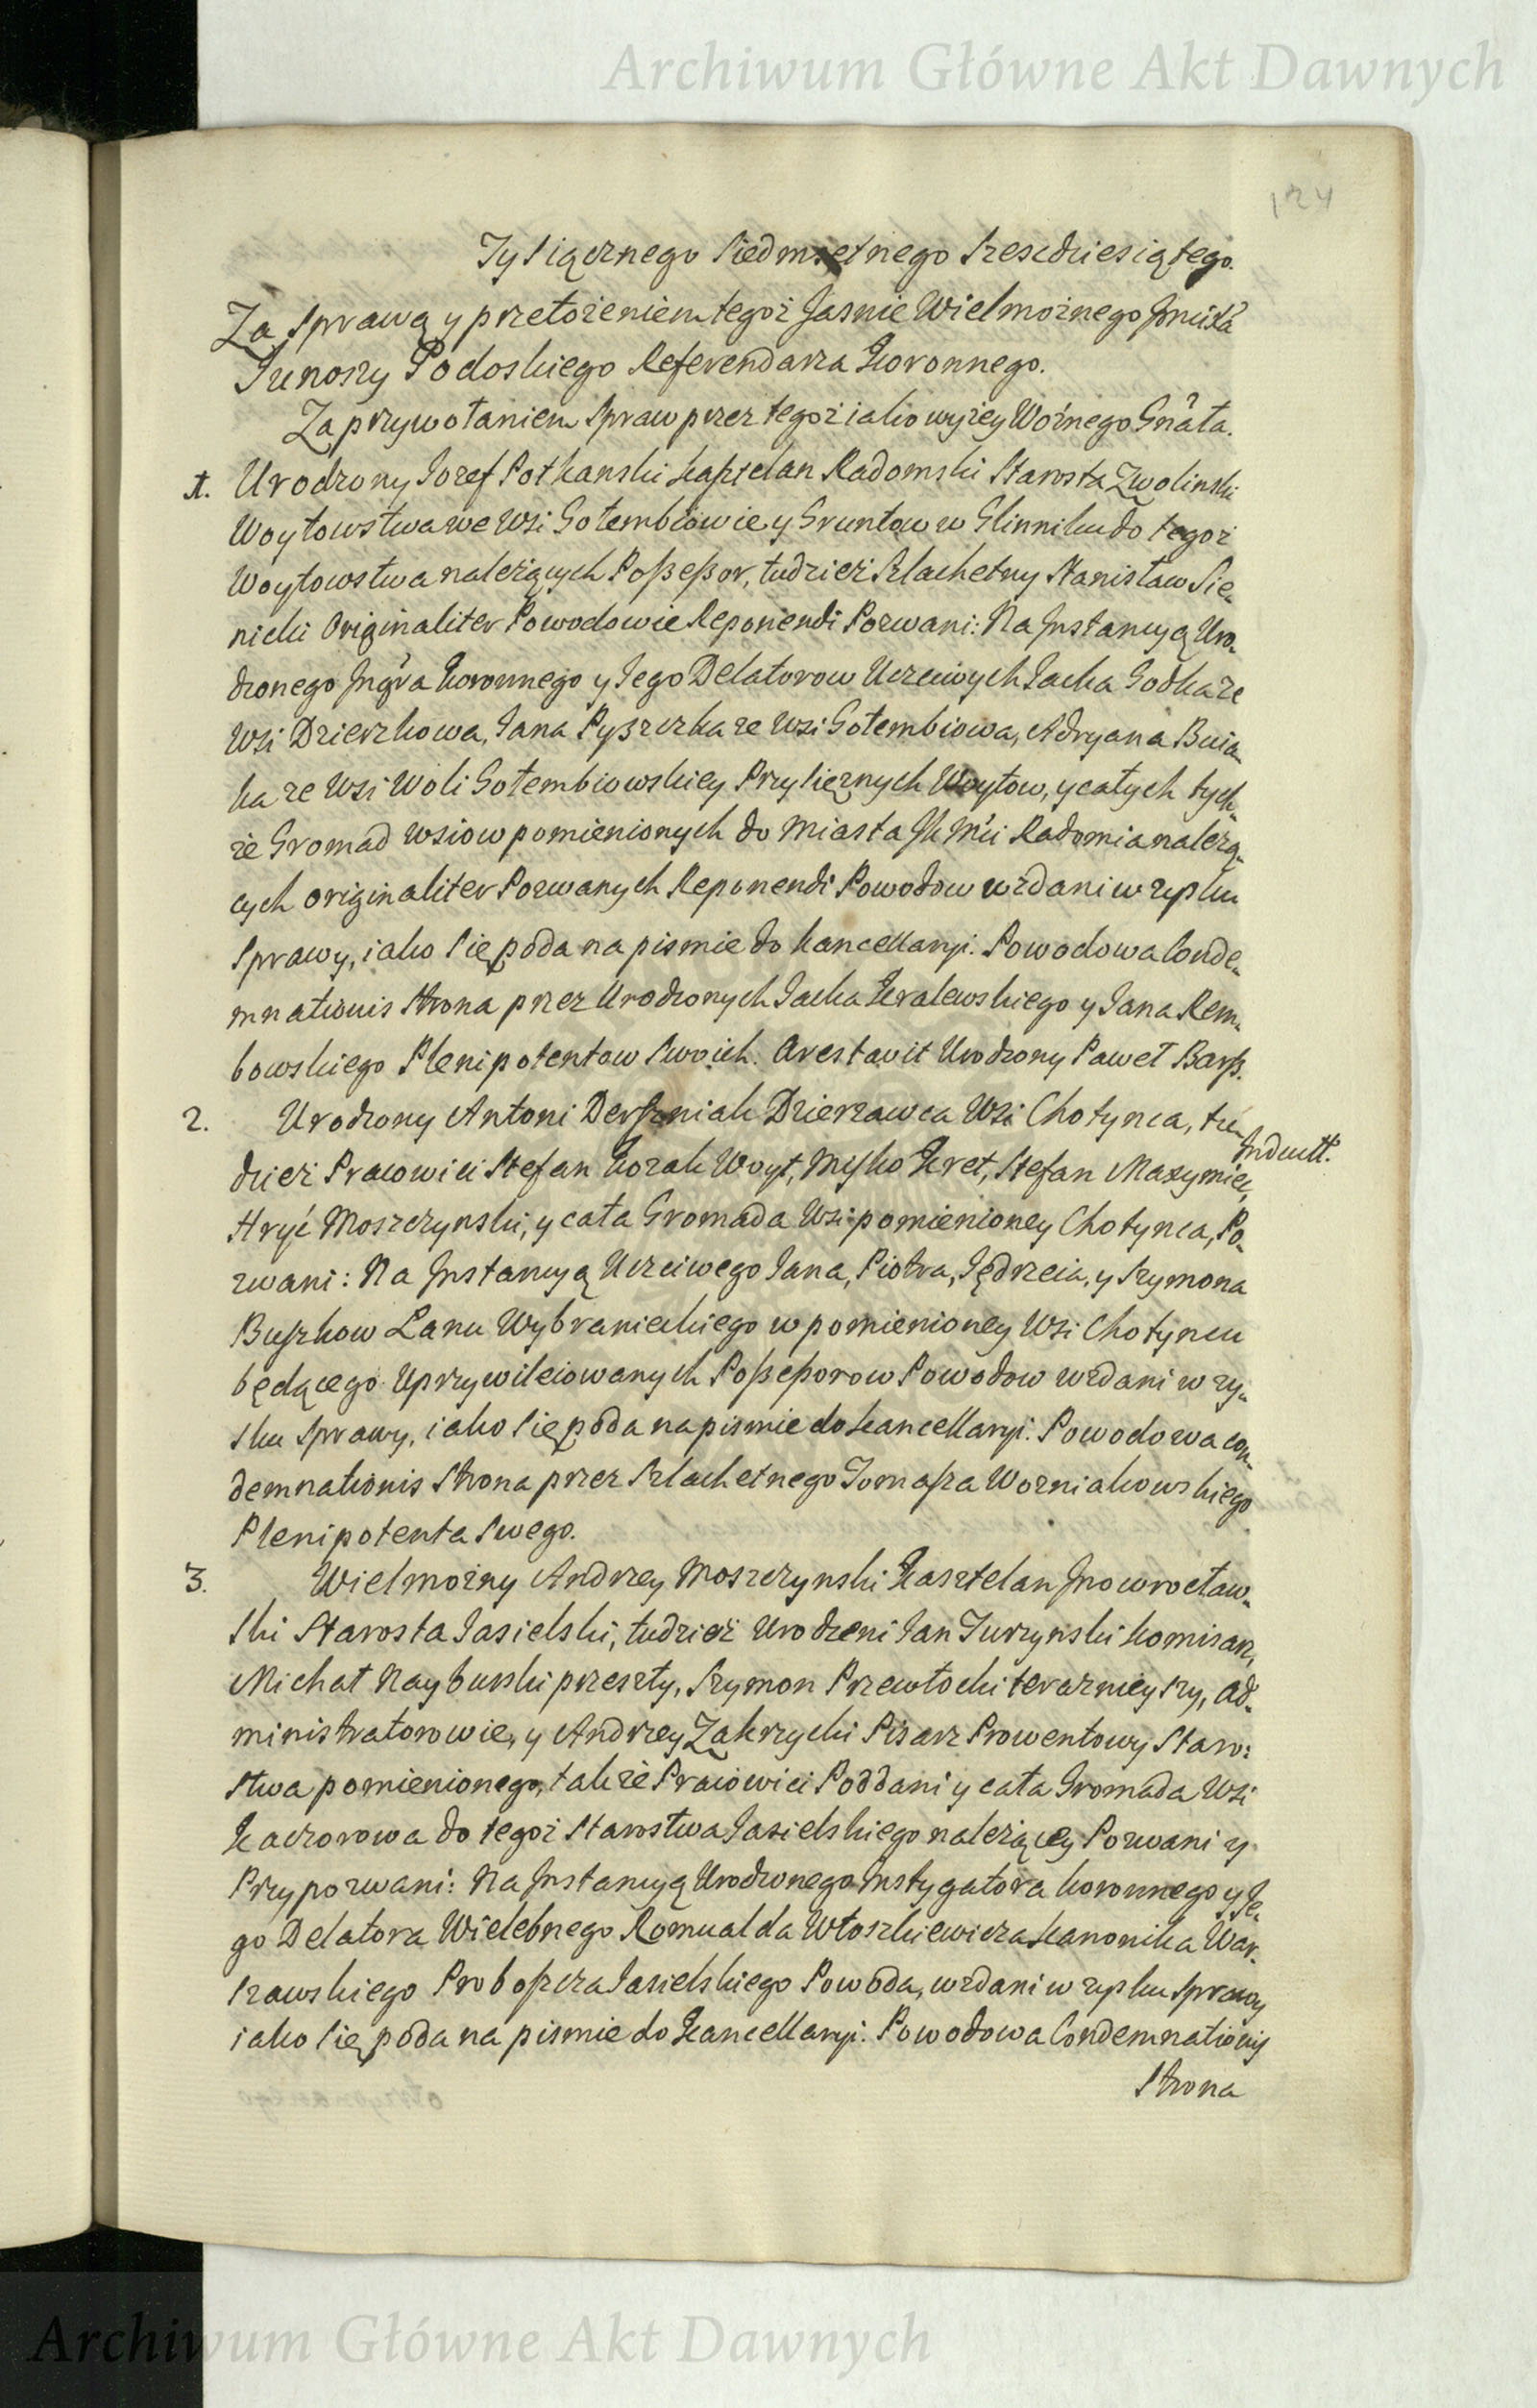 Archiwum Główne Akt Dawnych
124
Tysiącznego Siedmsetnego Szescdziesiątego.
Za sprawą y przełożeniem tegoż Jasnie Wielmożnego
Junoszy Podoskiego Referendarza Koronnego.
Za przywołaniem Spraw przez tegoż iako wyżey Woźnego Gnata.
1. Urodzony Jozef Potkanski Kasztelan Radomski Starosta Zwolinski
Woytowstwa we Wsi Gołembiowie y Gruntow w Glinniku do tegoż
Woytowstwa należących Poßeßor, tudzież Szlachetny Stanisław Sie-
nicki Originaliter Powodowie Reponendi Pozwani: Na Jnstancyą Uro-
dzonego Jngra Koronnego y Jego Delatorow Uczciwych Jacka Godka ze
Wsi Dzierzkowa, Jana Pyszczka ze Wsi Gołembiowa, Adryana Buia-
ka ze Wsi Woli Gołembiowskiey Przysiężnych Woytow, y całych tych-
że Gromad Wsiow pomienionych do Miasta JK Mci Radomia należą-
cych originaliter Pozwanych Reponendi Powodow wzdani w zysku
Sprawy, iako się poda na pismie do Kancellaryi. Powodowa Conde-
mnationis Strona przez Urodzonych Jacka Kralewskiego y Jana Rem-
bowskiego Plenipotentow Swoich. Arestavit Urodzony Paweł Barß.
2. Urodzony Antoni Derszniak Dzierzawca Wsi Chotynca, tu-
Jndult.
dzież Pracowici Stefan Kozak Woyt, Myśko Kret, Stefan Maxymiec,
Hryć Moszczynski, y cała Gromada Wsi pomienioney Chotynca, Po-
zwani: Na Jnstancyą Uczciwego Jana, Piotra, Jędrzeia, y Szymona
Buszkow Lanu Wybranieckiego w pomienioney Wsi Chotyncu
będącego Uprzywileiowanych Poßeßorow Powodow wzdani w zy-
sku Sprawy, iako się poda na pismie do Kancellaryi. Powodowa Con-
demnationis Strona przez Szlachetnego Tomasza Wozniakowskiego
Plenipotenta Swego.
3. Wielmożny Andrzey Moszczynski Kasztelan Jnowrocław-
ski Starosta Jasielski, tudzież Urodzeni Jan Turzyński Komisarz,
Michał Nayburski przeszły, Szymon Przewłocki teraznieyszy, Ad-
ministratorowie, y Andrzey Zakrzycki Pisarz Prowentowy Staro-
stwa pomienionego, także Pracowici Poddani y cała Gromada Wsi
Kaczorowa do tegoż Starostwa Jasielskiego należącey Pozwani y
Przypozwani: Na Jnstancyą Urodzonego Jnstygatora Koronnego y Je-
go Delatora Wielebnego Romualda Włoszkiewicza Kanonika War-
szawskiego Proboszcza Jasielskiego Powoda, wzdani w zysku Sprawy
iako się poda na pismie do Kancellaryi. Powodowa Condemnationis
Strona
Archiwum Główne Akt Dawnych